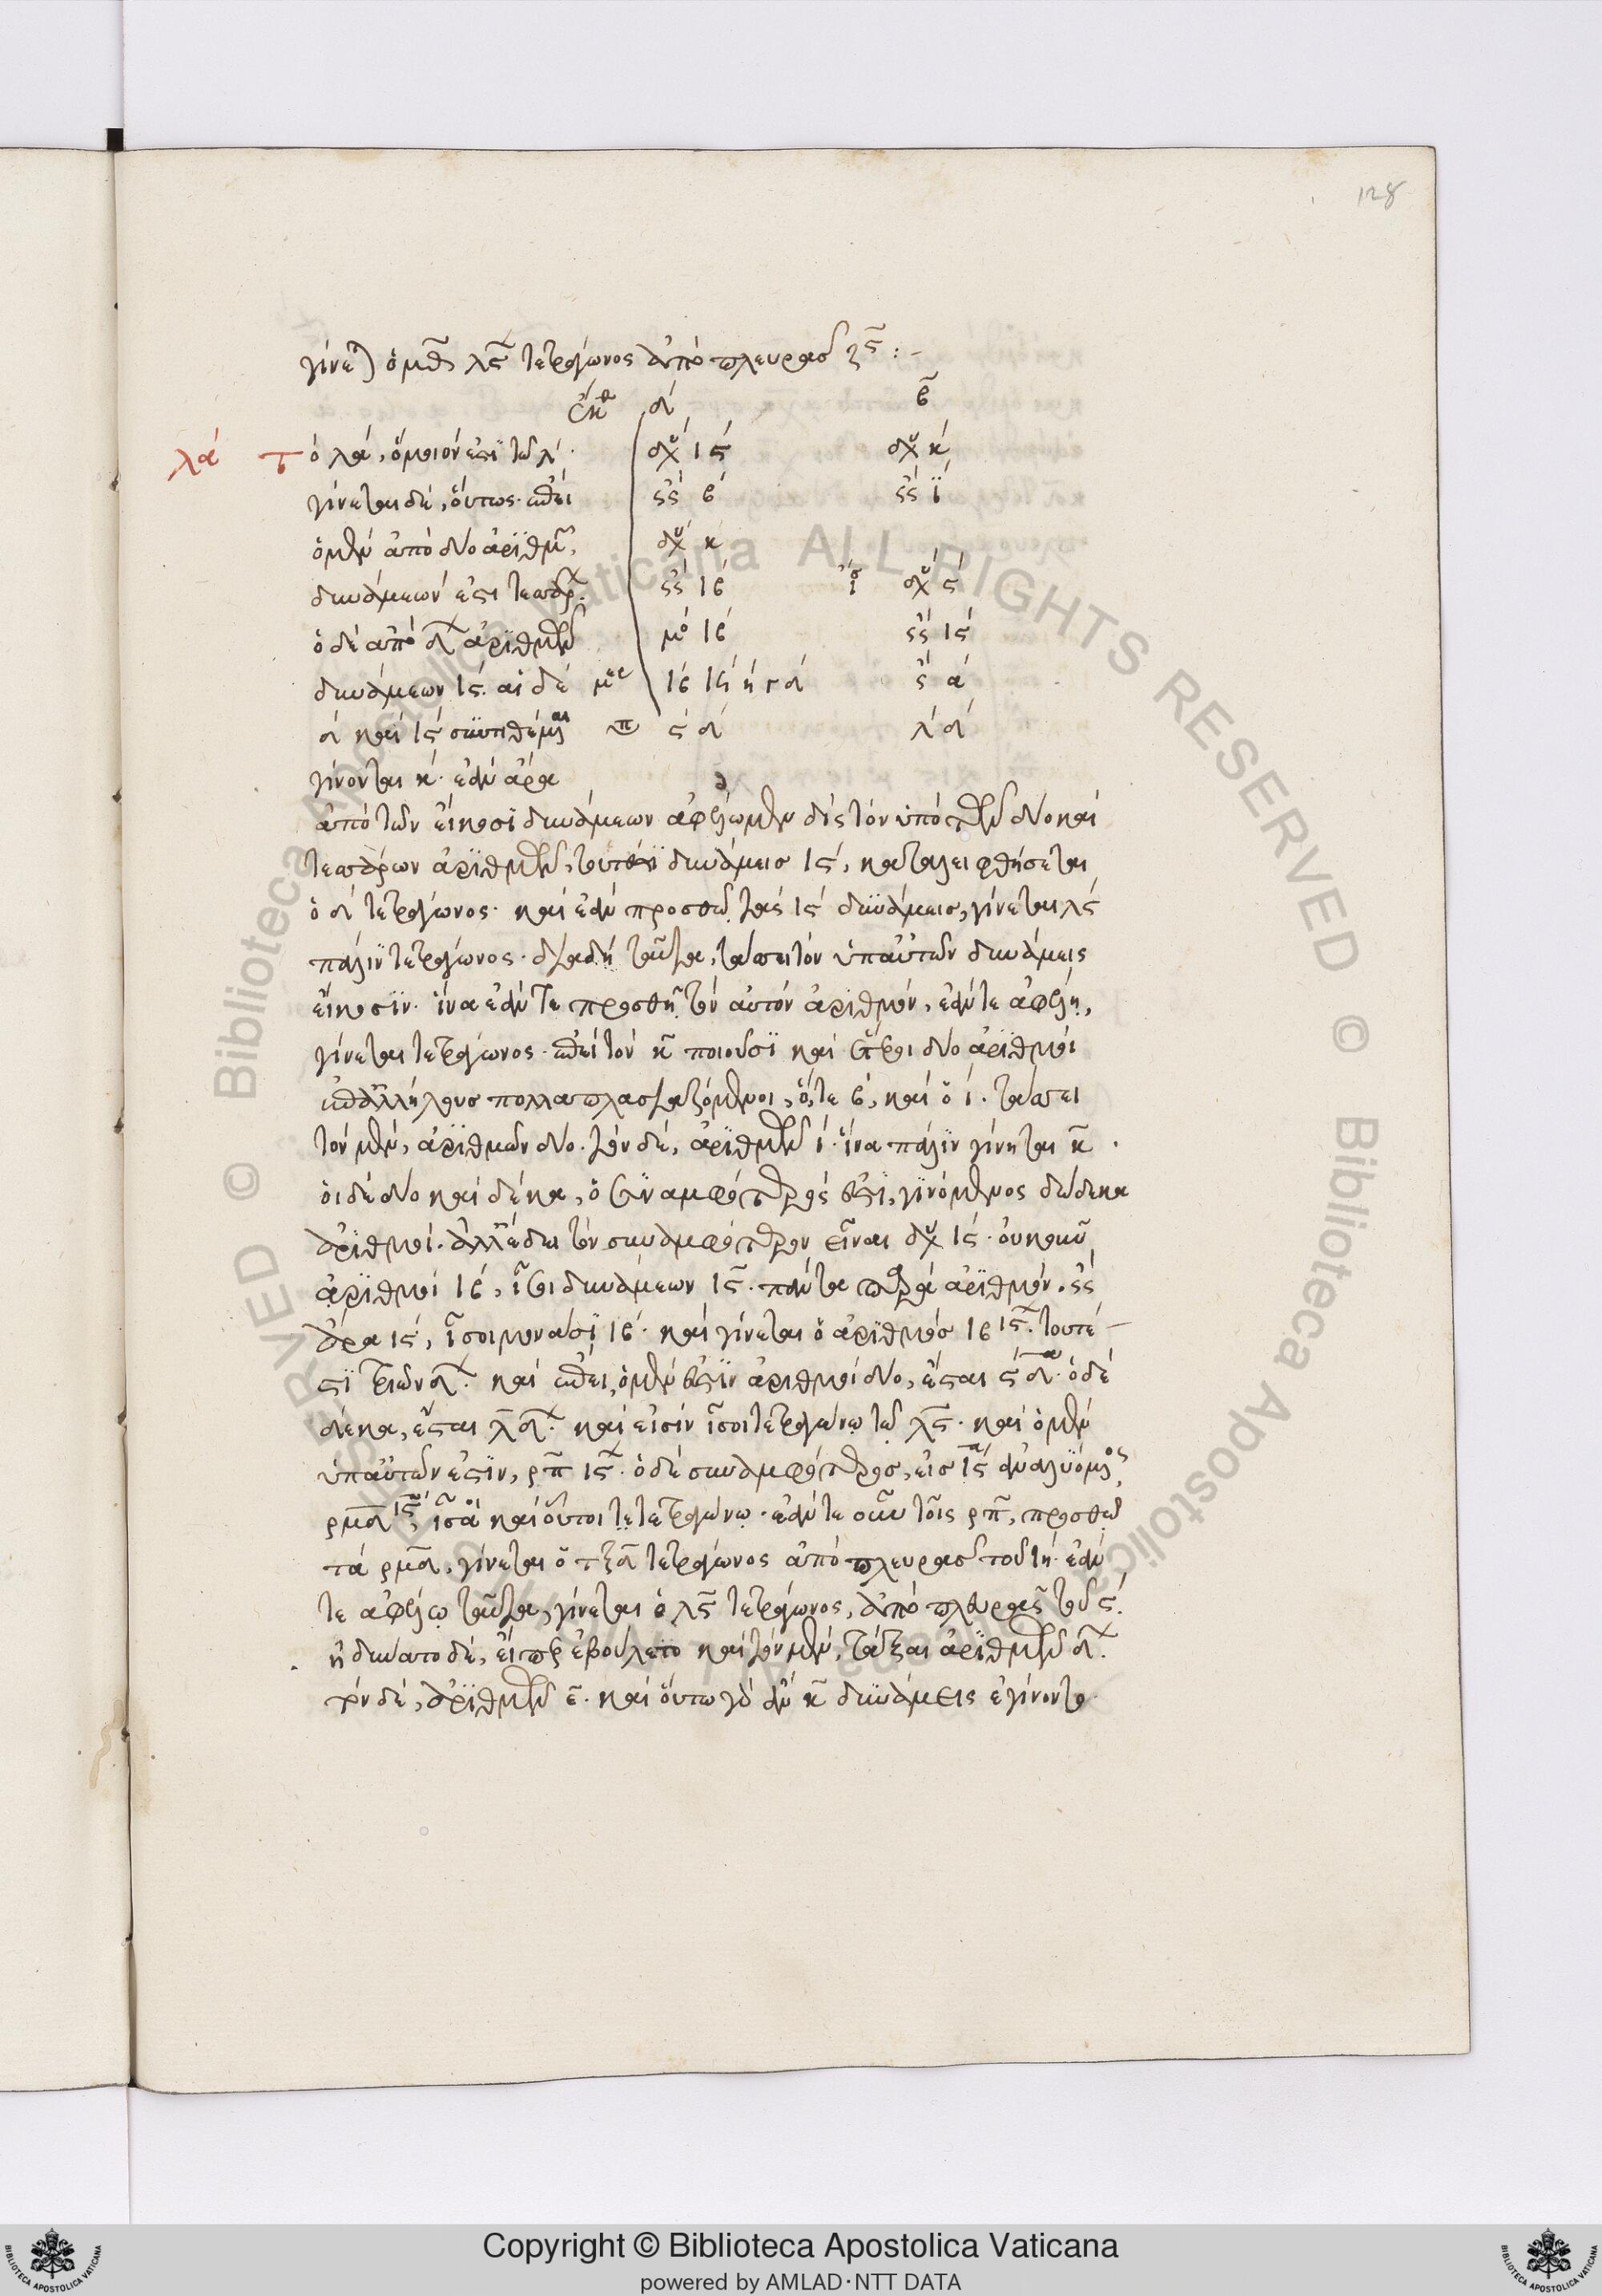 128
γίνετ) ὁ μθ λς τετράγωνος ἀπὸ πλευρᾶς ς :-
ἔκθ δ β
λά Τὸ λά, ὅμοιόν ἐστι τῶ λ· δυ ις δυ κ
γίνεται δὲ, οὕτως· ἐπεὶ ςς β ςς ι
ὁ μὲν ἀπὸ δύο ἀριθμ, δυ κ
δυνάμεων ἐστι τεσσάρ. ςς ιβ ις δυ ς
ὁ δὲ ἀπὸ δ ἀριθμῶν μο ιβ ςς ις
δυνάμεων ις. αἱ δὲ με ιβ ις ἢ γ δ ς α
δ καὶ ις συντιθέμεναι π ς δ λ δ
γίνονται κ· ἐὰν ἄρα
ἀπὸ τῶν εἴκοσι δυνάμεων ἀφέλωμεν δὶς τὸν ὑπὸ τῶν δύο καὶ
τεσσάρων ἀριθμῶν, τουτέστι δυνάμεις ις, καταλειφθήσεται
ὁ δ τετράγωνος· καὶ ἐὰν προσθῶ τὰς ις δυνάμεις, γίνεται λς
πάλιν τετράγωνος· διὰ δὴ ταῦτα, τάσσει τὸν ὑπ' αὐτῶν δυνάμεις
εἴκοσιν· ἵνα ἐάν τε προσθῇ τὸν αὐτὸν ἀριθμὸν, ἐάν τε ἀφέλῃ,
γίνεται τετράγωνος· ἐπεὶ τὸν κ ποιοῦσι καὶ ἕτεροι δύο ἀριθμοὶ
ἐπ' ἀλλήλους πολλαπλασιαζόμενοι, ὅ, τε β, καὶ ὁ ι. τάσσει
τὸν μὲν, ἀριθμῶν δύο. τὸν δὲ, ἀριθμῶν ι· ἵνα πάλιν γίνηται κ·
οἱ δὲ δύο καὶ δέκα, ὁ συναμφότερός ἐστι, γινόμενος δώδεκα
ἀριθμοί. ἀλλ' ἔδει τὸν συναμφότερον εἶναι δυ ις· οὐκοῦν
ἀριθμοὶ ιβ, ἴσοι δυνάμεων ις. πάντα παρὰ ἀριθμόν. ςς
ἄρα ις, ἴσοι μονάσι ιβ· καὶ γίνεται ὁ ἀριθμὸς ιβ ις. τουτέ-
στι τριῶν δ. καὶ ἐπεὶ, ὁ μέν ἐστιν ἀριθμοὶ δύο, ἔσται ς δ. ὁ δὲ
δέκα, ἔσται λ δ. καὶ εἰσὶν ἴσοι τετραγώνῳ τῷ λς. καὶ ὁ μὲν
ὑπ' αὐτῶν ἐστιν, ρπ ις. ὁ δὲ συναμφότερος, εἰς ις ἀναλυόμενος
ρμδ ις, ἴσα καὶ οὗτοι τετραγώνῳ. ἐάν τε οὖν τοῖς ρπ, προσθῶ
τὰ ρμδ, γίνεται ὁ τκδ τετράγωνος ἀπὸ πλευρᾶς τοῦ ιη. ἐάν
τε ἀφέλω ταῦτα, γίνεται ὁ λς τετράγωνος, ἀπὸ πλευρᾶς τοῦ ς.
ἠδύνατο δὲ, εἴπερ ἐβούλετο καὶ τὸν μὲν, τάξαι ἀριθμῶν δ.
τὸν δὲ, ἀριθμῶν ε. καὶ οὕτω γὰρ ἂν κ δυνάμεις ἐγίνοντο·
Copyright © Biblioteca Apostolica Vaticana
powered by AMLAD·NTT DATA
© Biblioteca Apostolica Vaticana ALL RIGHTS RESERVED